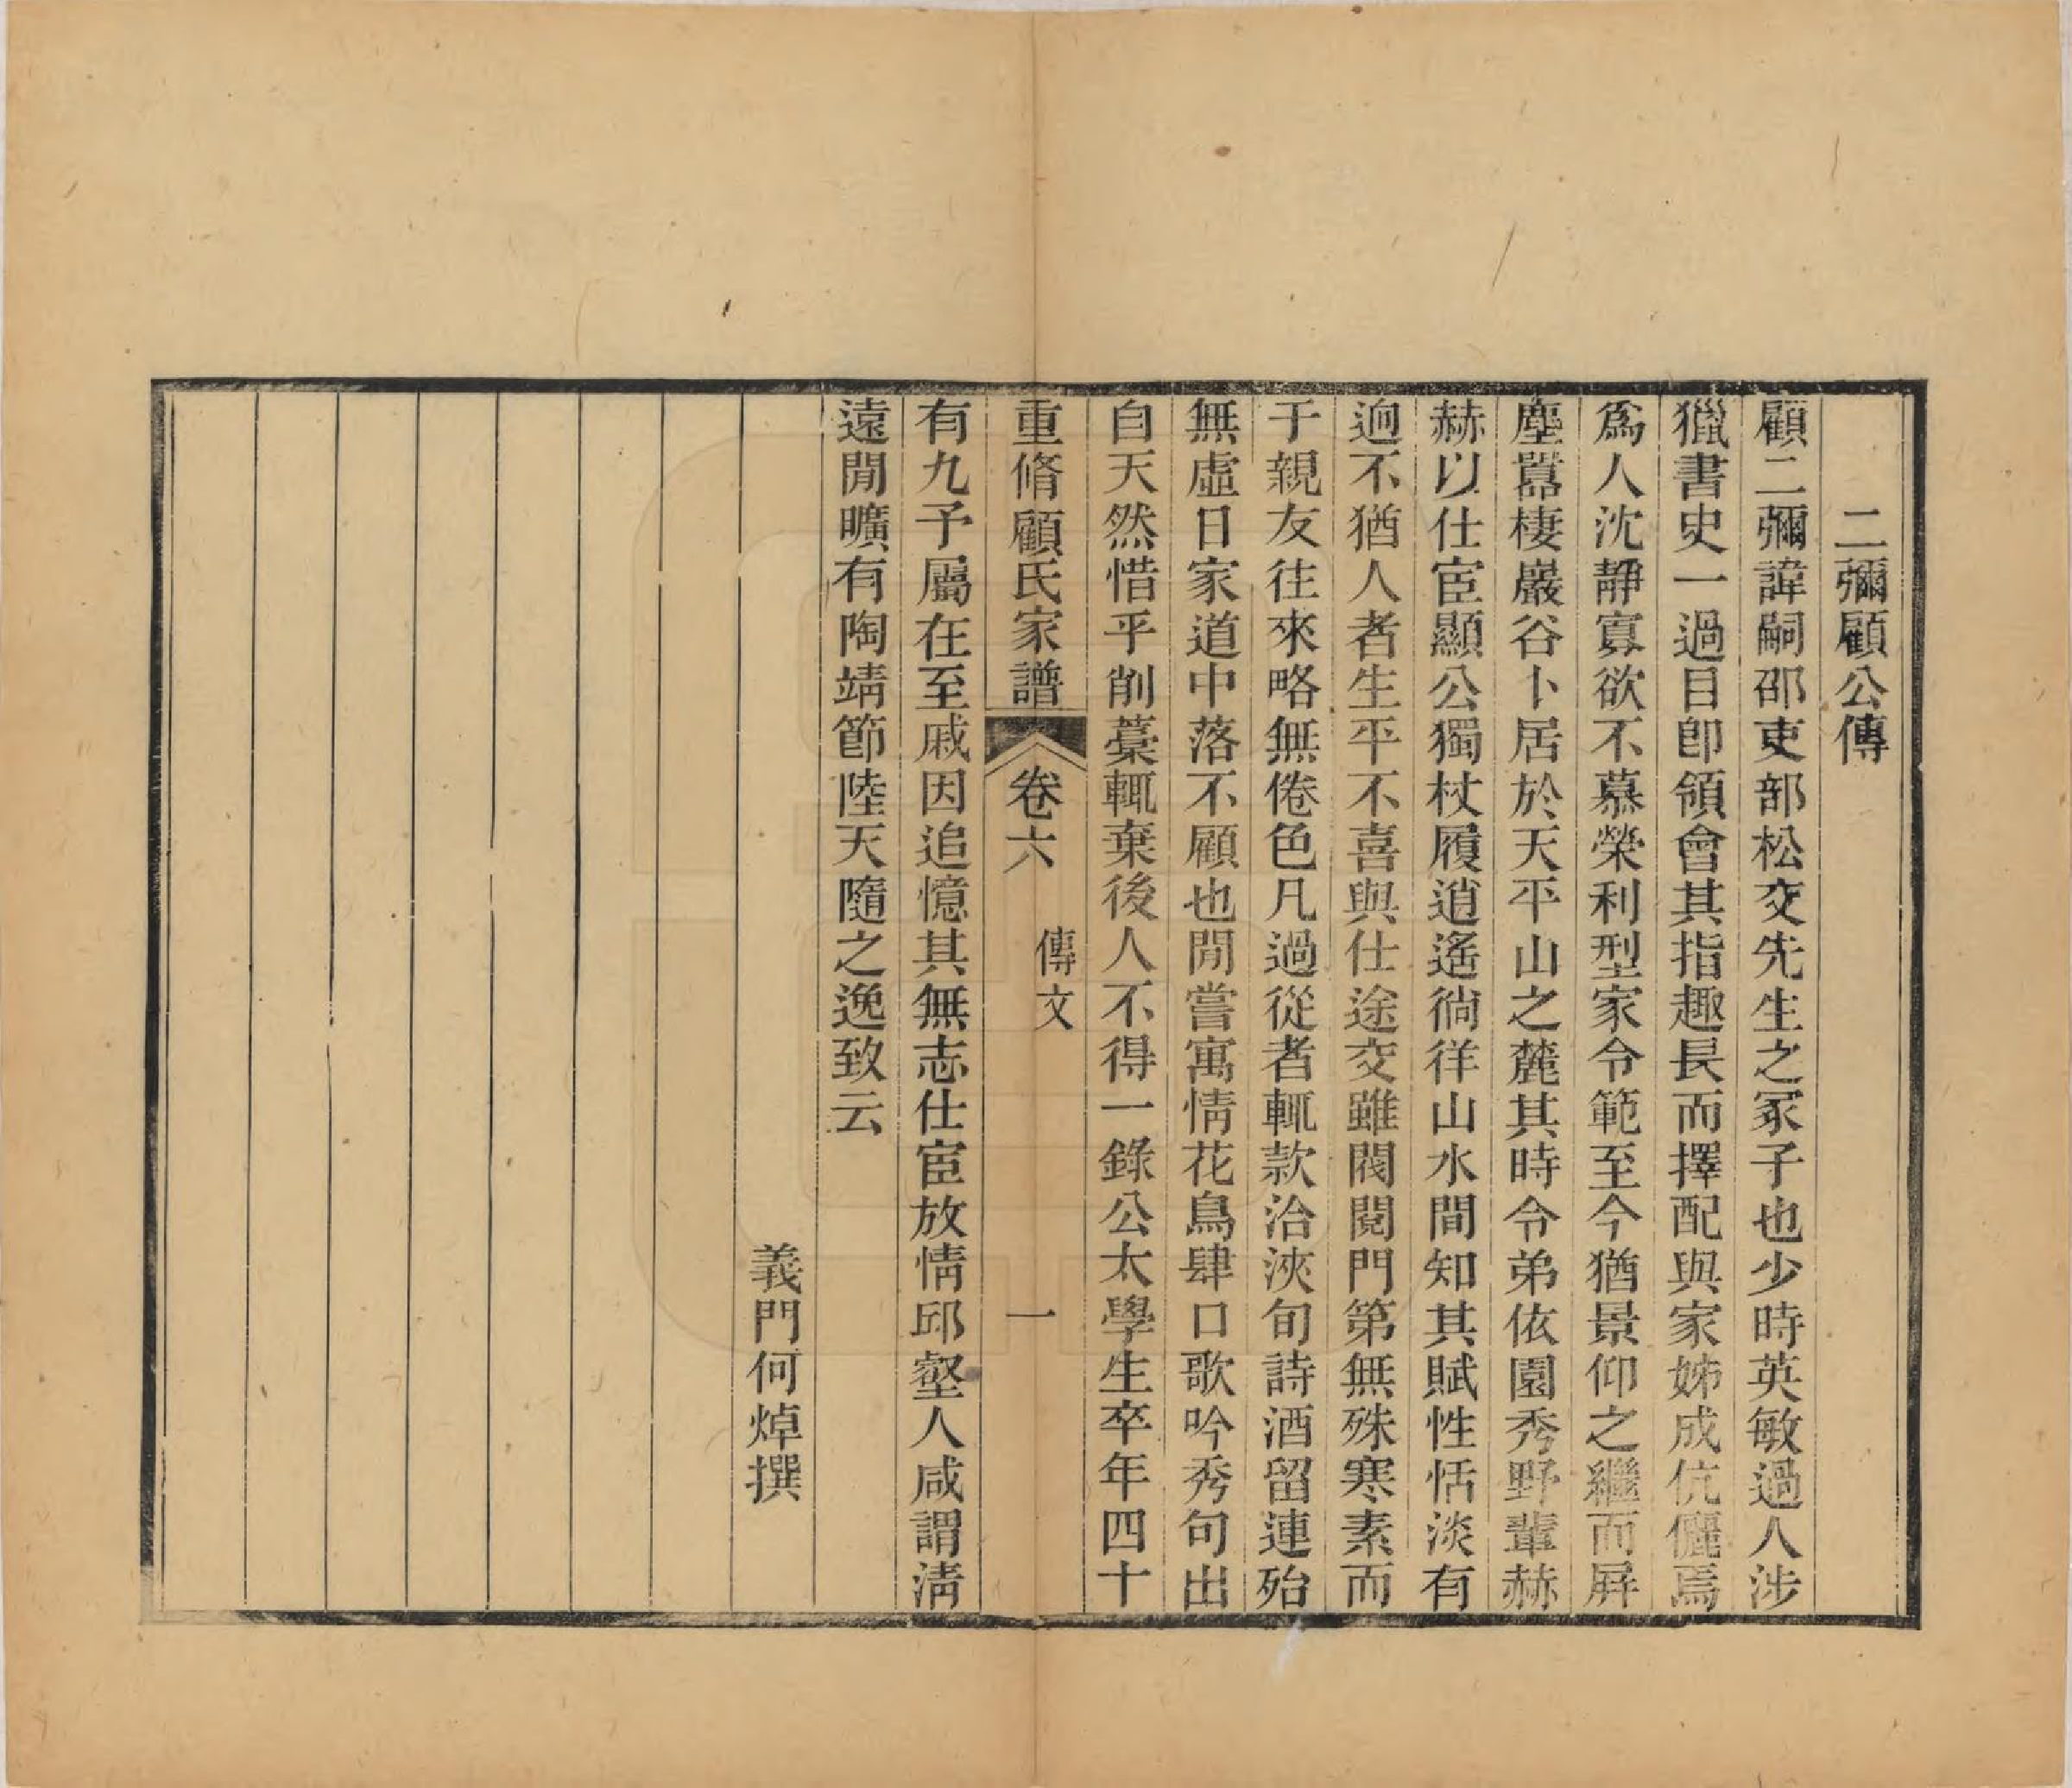 二彌顧公傳
顧二彌諱嗣邵吏部松交先生之冢子也少時英敏過人涉
獵書史一過目卽領會其指趣長而擇配與家姊成伉儷焉
爲人沈靜寡欲不慕榮利型家令範至今猶景仰之繼而屏
塵囂棲巖谷卜居於天平山之麓其時令弟依園秀野輩赫
赫以仕宦顯公獨杖履逍遙徜徉山水間知其賦性恬淡有
迥不猶人者生平不喜與仕途交雖閥閱門第無殊寒素而
于親友往來略無倦色凡過從者輒款洽浹旬詩酒留連殆
無虛日家道中落不顧也閒嘗寓情花鳥肆口歌吟秀句出
自天然惜乎削藁輒棄後人不得一錄公太學生卒年四十
重脩顧氏家譜 卷六 傳文 一
有九予屬在至戚因追憶其無志仕宦放情邱壑人咸謂淸
遠閒曠有陶靖節陸天隨之逸致云
義門何焯撰